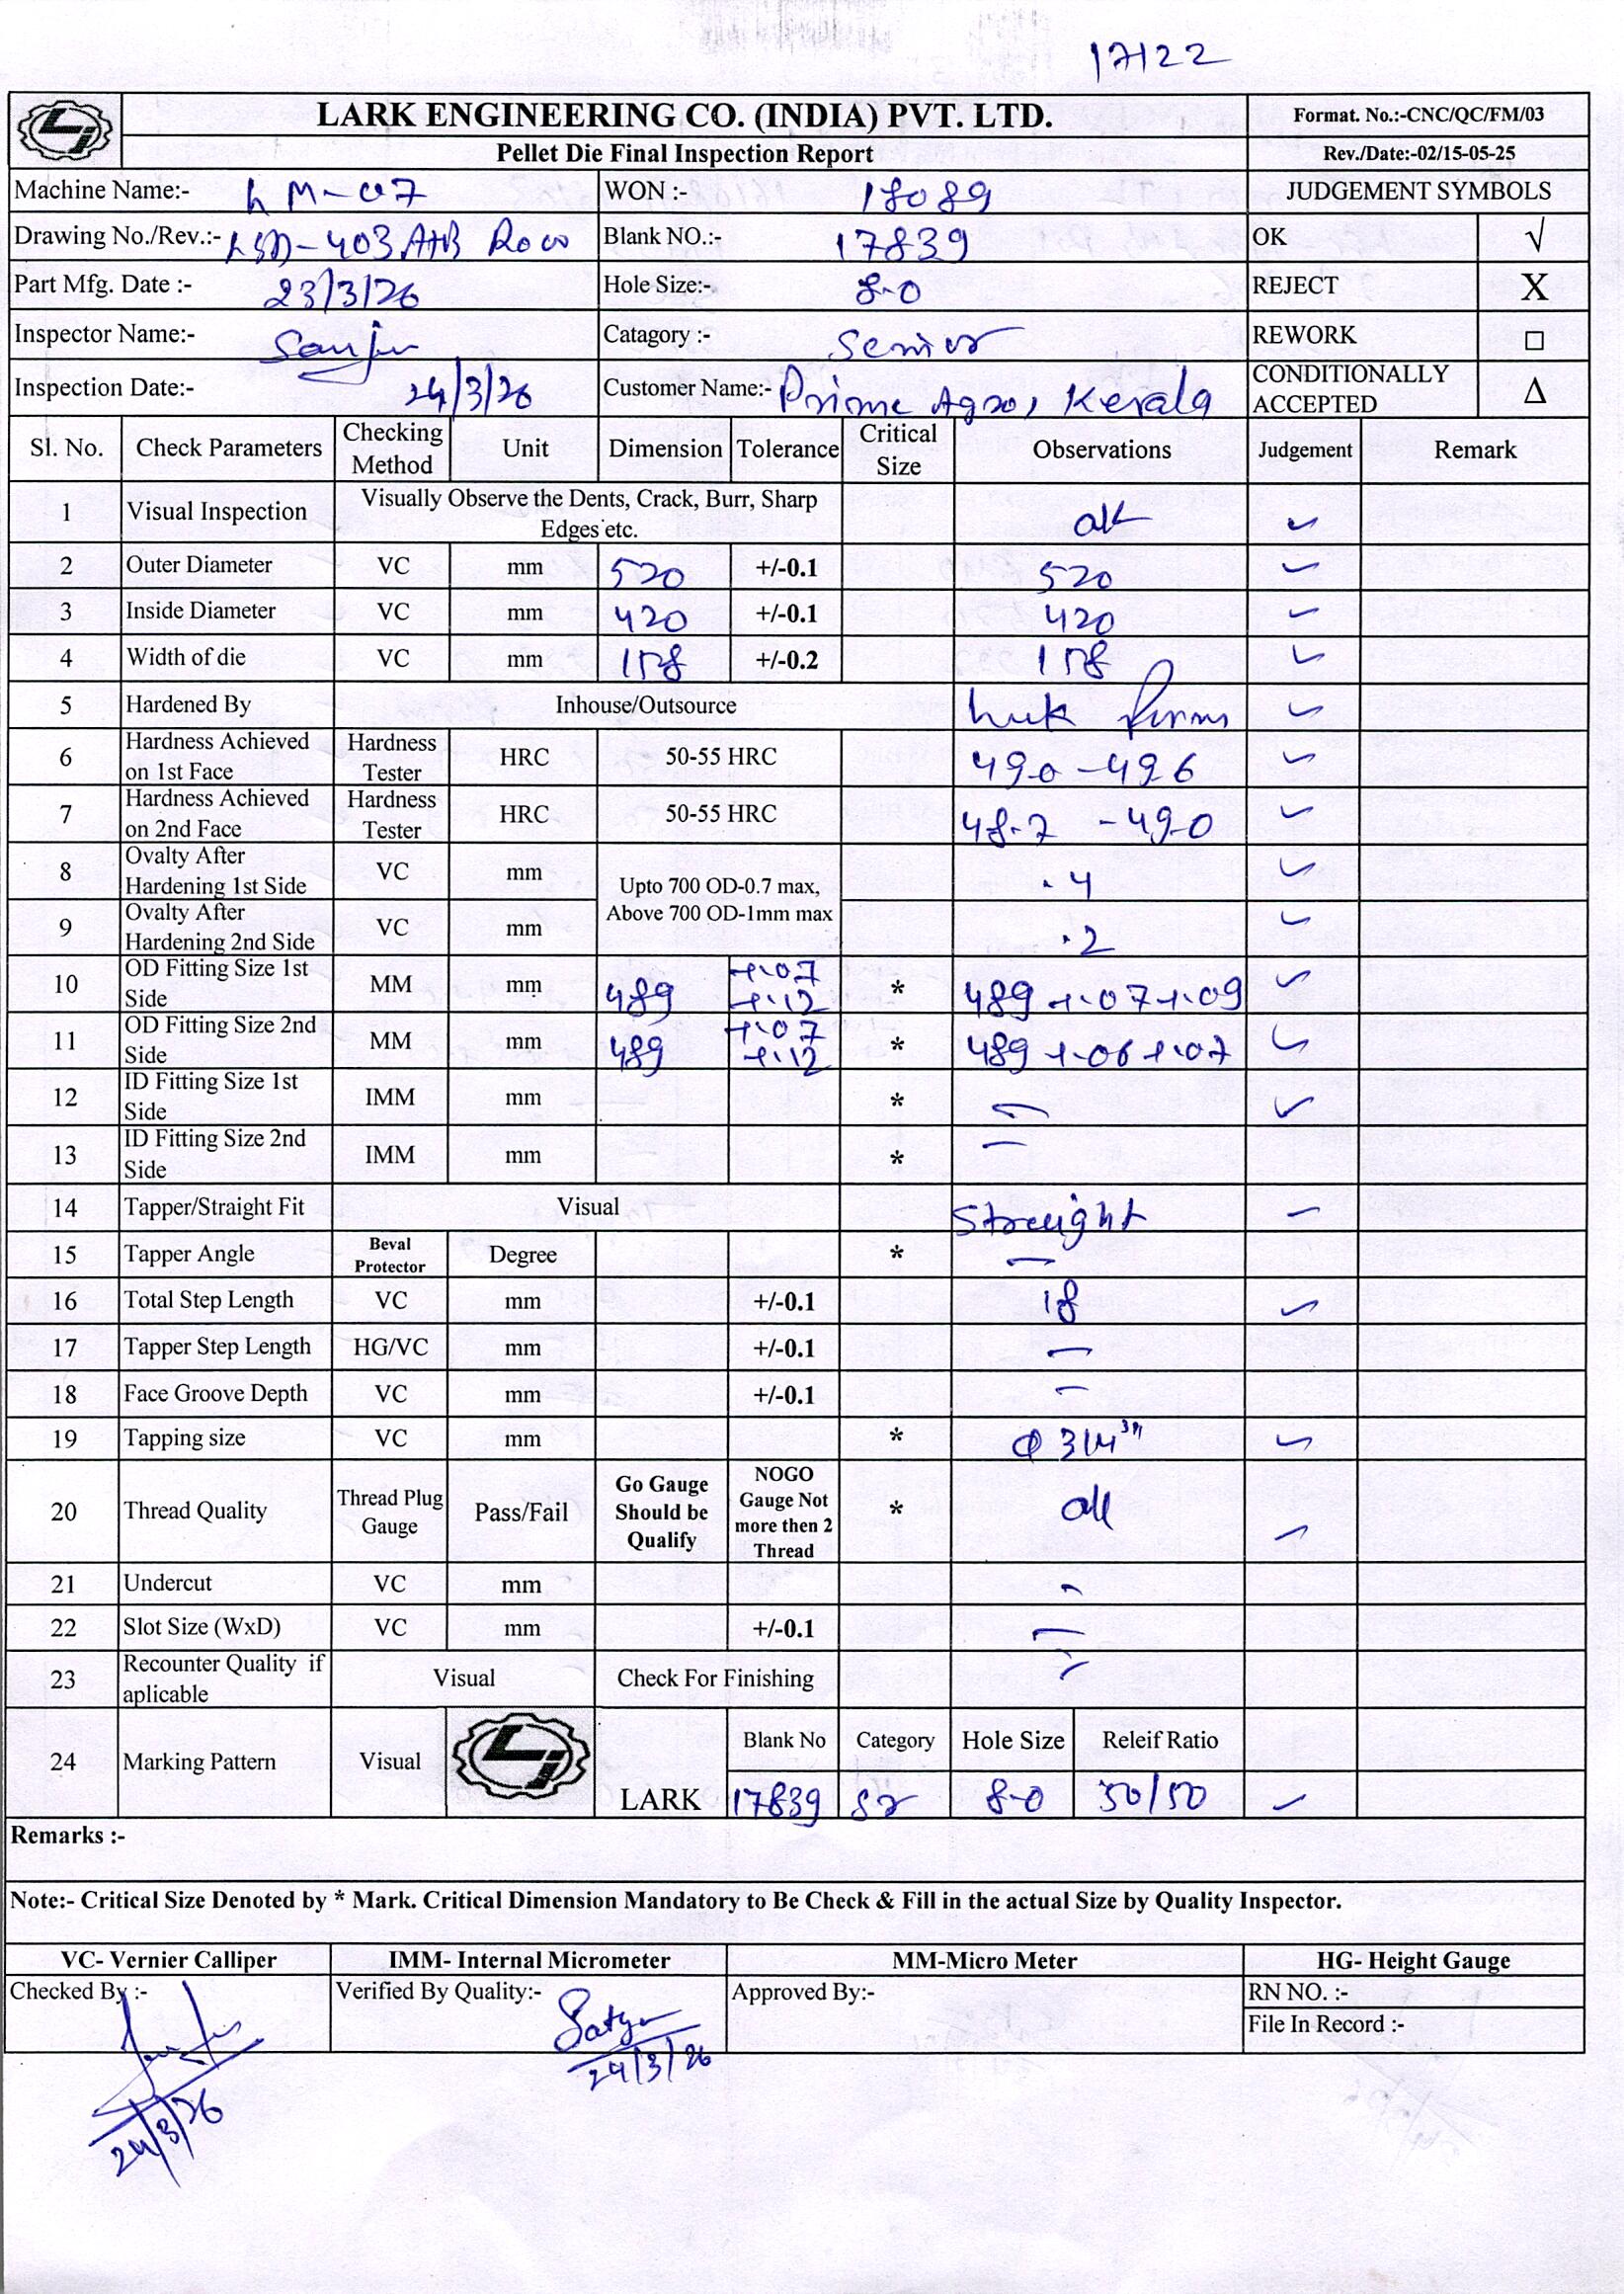 17122
LARK ENGINEERING CO. (INDIA) PVT. LTD.
Format. No.:-CNC/QC/FM/03
Pellet Die Final Inspection Report
Rev./Date:-02/15-05-25
Machine Name:- LM-07 WON :- 18089 JUDGEMENT SYMBOLS
Drawing No./Rev.:- LSD-403 A+B Row Blank NO.:- 17839 OK √
Part Mfg. Date :- 23/3/26 Hole Size:- 8.0 REJECT X
Inspector Name:- Sanju Catagory :- Senior REWORK □
Inspection Date:- 24/3/26 Customer Name:- Prime Agro, Kerala CONDITIONALLY ACCEPTED Δ
Sl. No. Check Parameters Checking Method Unit Dimension Tolerance Critical Size Observations Judgement Remark
1 Visual Inspection Visually Observe the Dents, Crack, Burr, Sharp Edges etc. ok ✓
2 Outer Diameter VC mm 520 +/-0.1 520 ✓
3 Inside Diameter VC mm 420 +/-0.1 420 ✓
4 Width of die VC mm 158 +/-0.2 158 ✓
5 Hardened By Inhouse/Outsource ✓
6 Hardness Achieved on 1st Face Hardness Tester HRC 50-55 HRC 49.0 -49.6 ✓
7 Hardness Achieved on 2nd Face Hardness Tester HRC 50-55 HRC 48.7 -49.0 ✓
8 Ovalty After Hardening 1st Side VC mm Upto 700 OD-0.7 max, Above 700 OD-1mm max .4 ✓
9 Ovalty After Hardening 2nd Side VC mm .2 ✓
10 OD Fitting Size 1st Side MM mm 489 +.07 +.12 * 489 +.07 +.09 ✓
11 OD Fitting Size 2nd Side MM mm 489 +.07 +.12 * 489 +.06 +.07 ✓
12 ID Fitting Size 1st Side IMM mm * — ✓
13 ID Fitting Size 2nd Side IMM mm * —
14 Tapper/Straight Fit Visual Straight ✓
15 Tapper Angle Beval Protector Degree * —
16 Total Step Length VC mm +/-0.1 18 ✓
17 Tapper Step Length HG/VC mm +/-0.1 —
18 Face Groove Depth VC mm +/-0.1 —
19 Tapping size VC mm * ✓
20 Thread Quality Thread Plug Gauge Pass/Fail Go Gauge Should be Qualify NOGO Gauge Not more then 2 Thread * ok ✓
21 Undercut VC mm —
22 Slot Size (WxD) VC mm +/-0.1 —
23 Recounter Quality if aplicable Visual Check For Finishing —
24 Marking Pattern Visual LARK Blank No Category Hole Size Releif Ratio
17839 Sr 8.0 50/50 ✓
Remarks :-
Note:- Critical Size Denoted by * Mark. Critical Dimension Mandatory to Be Check & Fill in the actual Size by Quality Inspector.
VC- Vernier Calliper IMM- Internal Micrometer MM-Micro Meter HG- Height Gauge
Checked By :- Verified By Quality:- Satya Approved By:- RN NO. :-
File In Record :-
24/3/26
24/3/26